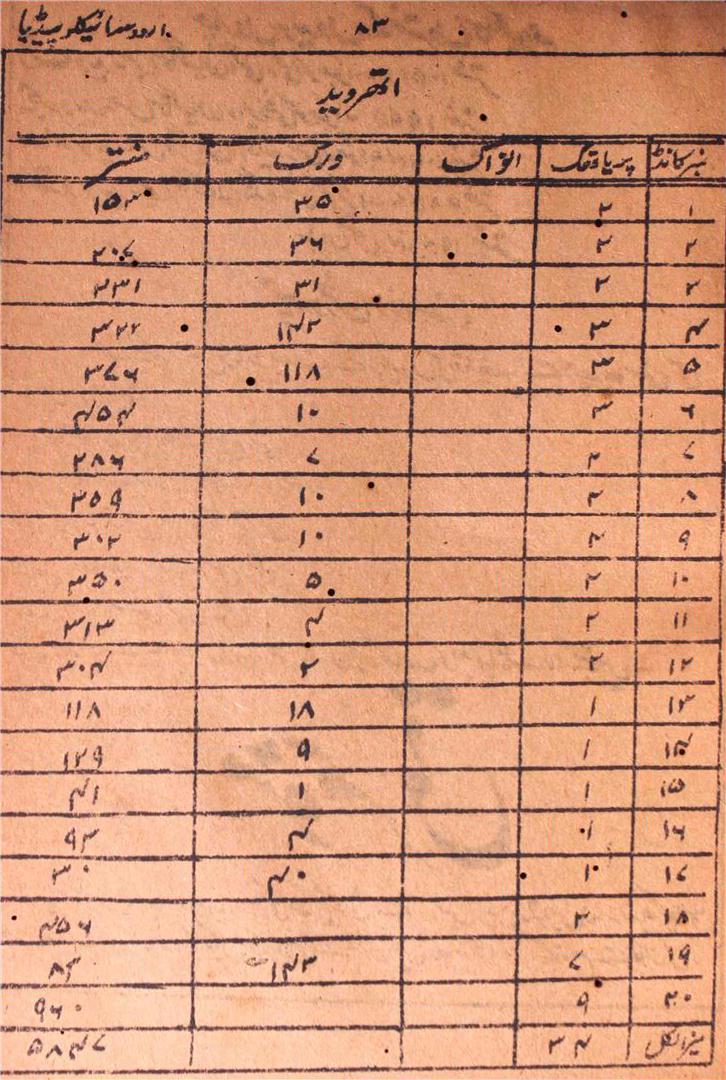 اردو سائیکلوپیڈیا ۸۳
اتھروید
نمبر کانڈ پریاٹھک انواک ورگ منتر
۱ ۲ ۳۵ ۱۵۳
۲ ۲ ۳۶ ۲۰۷
۳ ۲ ۳۱ ۲۳۱
۴ ۳ ۱۴۲ ۳۲۲
۵ ۳ ۱۱۸ ۳۷۶
۶ ۳ ۱۰ ۴۵۴
۷ ۲ ۷ ۲۸۶
۸ ۲ ۱۰ ۲۵۹
۹ ۲ ۱۰ ۳۰۲
۱۰ ۲ ۵ ۳۵۰
۱۱ ۲ ۴ ۳۱۳
۱۲ ۲ ۲ ۳۰۴
۱۳ ۱ ۱۸ ۱۱۸
۱۴ ۱ ۹ ۱۳۹
۱۵ ۱ ۱ ۴۱
۱۶ ۱ ۴ ۹۳
۱۷ ۱ ۴۰ ۳۰
۱۸ ۳ ۴۵۶
۱۹ ۷ ۱۴۳ ۸۳
۲۰ ۹ ۹۶۰
میزان کل ۳۴ ۵۸۴۷